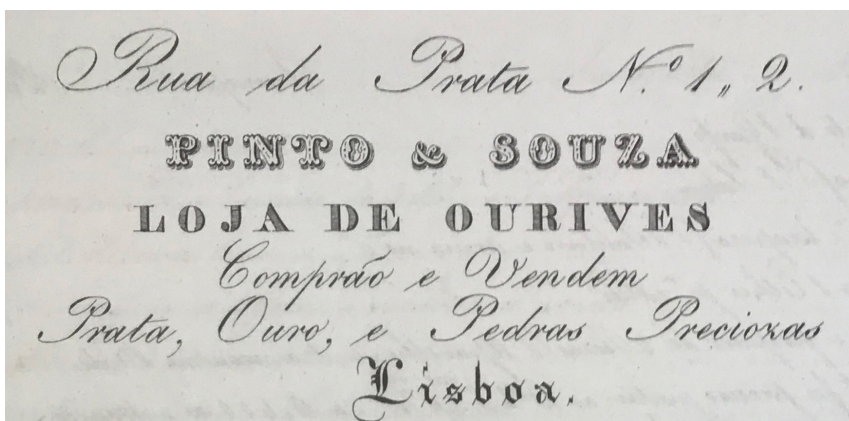 Rua da Prata N.º 1,, 2.
PINTO & SOUZA
LOJA DE OURIVES
Comprão e Vendem
Prata, Ouro, e Pedras Preciozas
Lisboa.